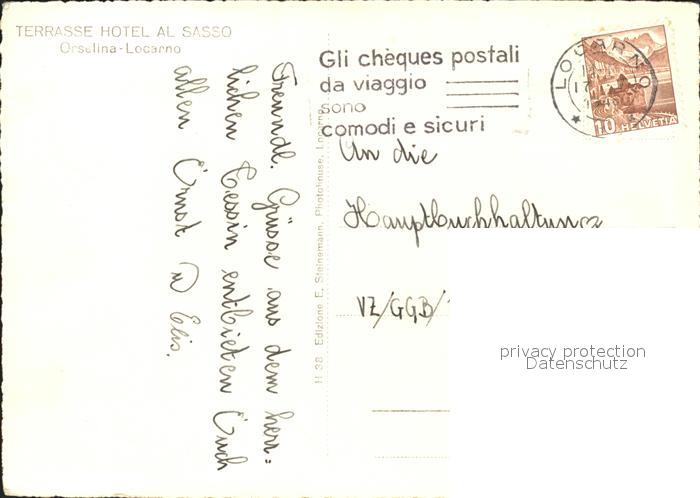 TERRASSE HOTEL AL SASSO
Orselina-Locarno
Freundl. Grüsse aus dem herr=
lichen Tessin entbieten Euch
allen Ernst u Elis.
H 38 - Edizione E. Steinemann, Photohouse, Locarno
Gli chèques postali
da viaggio
sono
comodi e sicuri
LOCARNO
10 HELVETIA
An die
Hauptbuchhaltung
VZ/GGB/
privacy protection
Datenschutz